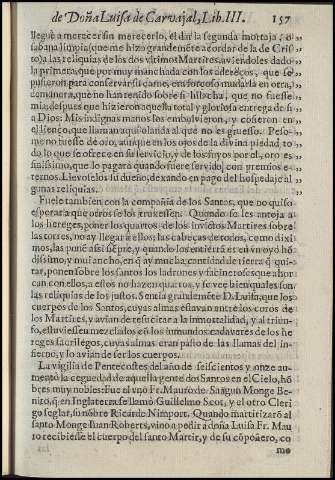 de Doña Luisa de Carvajal, Lib. III. 157
lleguè a merecer sin merecerlo, el dar la segunda mortaja, o
sabana limpia, que me hizo grandemẽte acordar de la de Cris
to, ja las reliquias de los dos vltimos Martires, aviendoles dado
la primera, que por muy manchada con los adereços, que se
pusieron para conservar su carne, era forçoso mudarla en otra,
de manera, que no han tenido sobre si hilacha, que no fuesse
mia, despues que hizieron aquella total y gloriosa entrega de si
a Dios: Mis indignas manos los embolvieron, y cosieron en
el lienço, que llaman aqui olanda al que no es gruesso. Peso-
me no fuesse de oro, aunque en los ojos de la divina piedad, to
do lo que se ofrece en su servicio, y de los suyos por el, oro es
finissimo, que lo pagarà quando fuere servido, con premios e-
ternos. Llevoselos su dueño, dexando en pago del hospedaje al
gunas reliquias.
Fuele tambien con la compañia de los Santos, que no quiso
esperar a que otros se los truxessen. Quando se les antoja a
los hereges, poner los quartos de los invictos Martires sobre
las torres, no ay llegar a ellos; las cabeças de todos, como dixi
mos, las pone assi siẽpre, y quando los entierrã es en vn oyo hõ
dissimo, y mui ancho, en q̃ ay mucha cantidad de tierra q̃ qui-
tar, ponen sobre los santos los ladrones y facinerosos que ahor
can con ellos, a estos no hazen quartos, y se vee bien quales son
las reliquias de los justos. Sentia grandemẽte D. Luisa, que los
cuerpos de los Santos, cuyas almas estavan entre los coros de
los Martires, y avian de resucitar a la inmortalidad, y al triun-
fo, estuviessen mezclados cõ los inmundos cadaveres de los he
reges sacrilegos, cuyas almas eran pasto de las llamas del in-
fierno, y lo avian de ser los cuerpos.
La vigilia de Pentecostes del año de seiscientos y onze au-
mentò la ceguedad de aquella gente dos Santos en el Cielo, hõ
bres muy nobles: Fue el vno Fr. Mauro de Sangun Monge Be-
nito, q̃ en Inglaterra se llamò Guillelmo Scot, y el otro Cleri
go seglar, su nõbre Ricardo Nimport. Quando martirizarõ al
santo Monge Iuan Roberts, vino a pedir a doña Luisa Fr. Mau
ro recibiesse el cuerpo del santo Martir, y de su cõpañero, co
mo